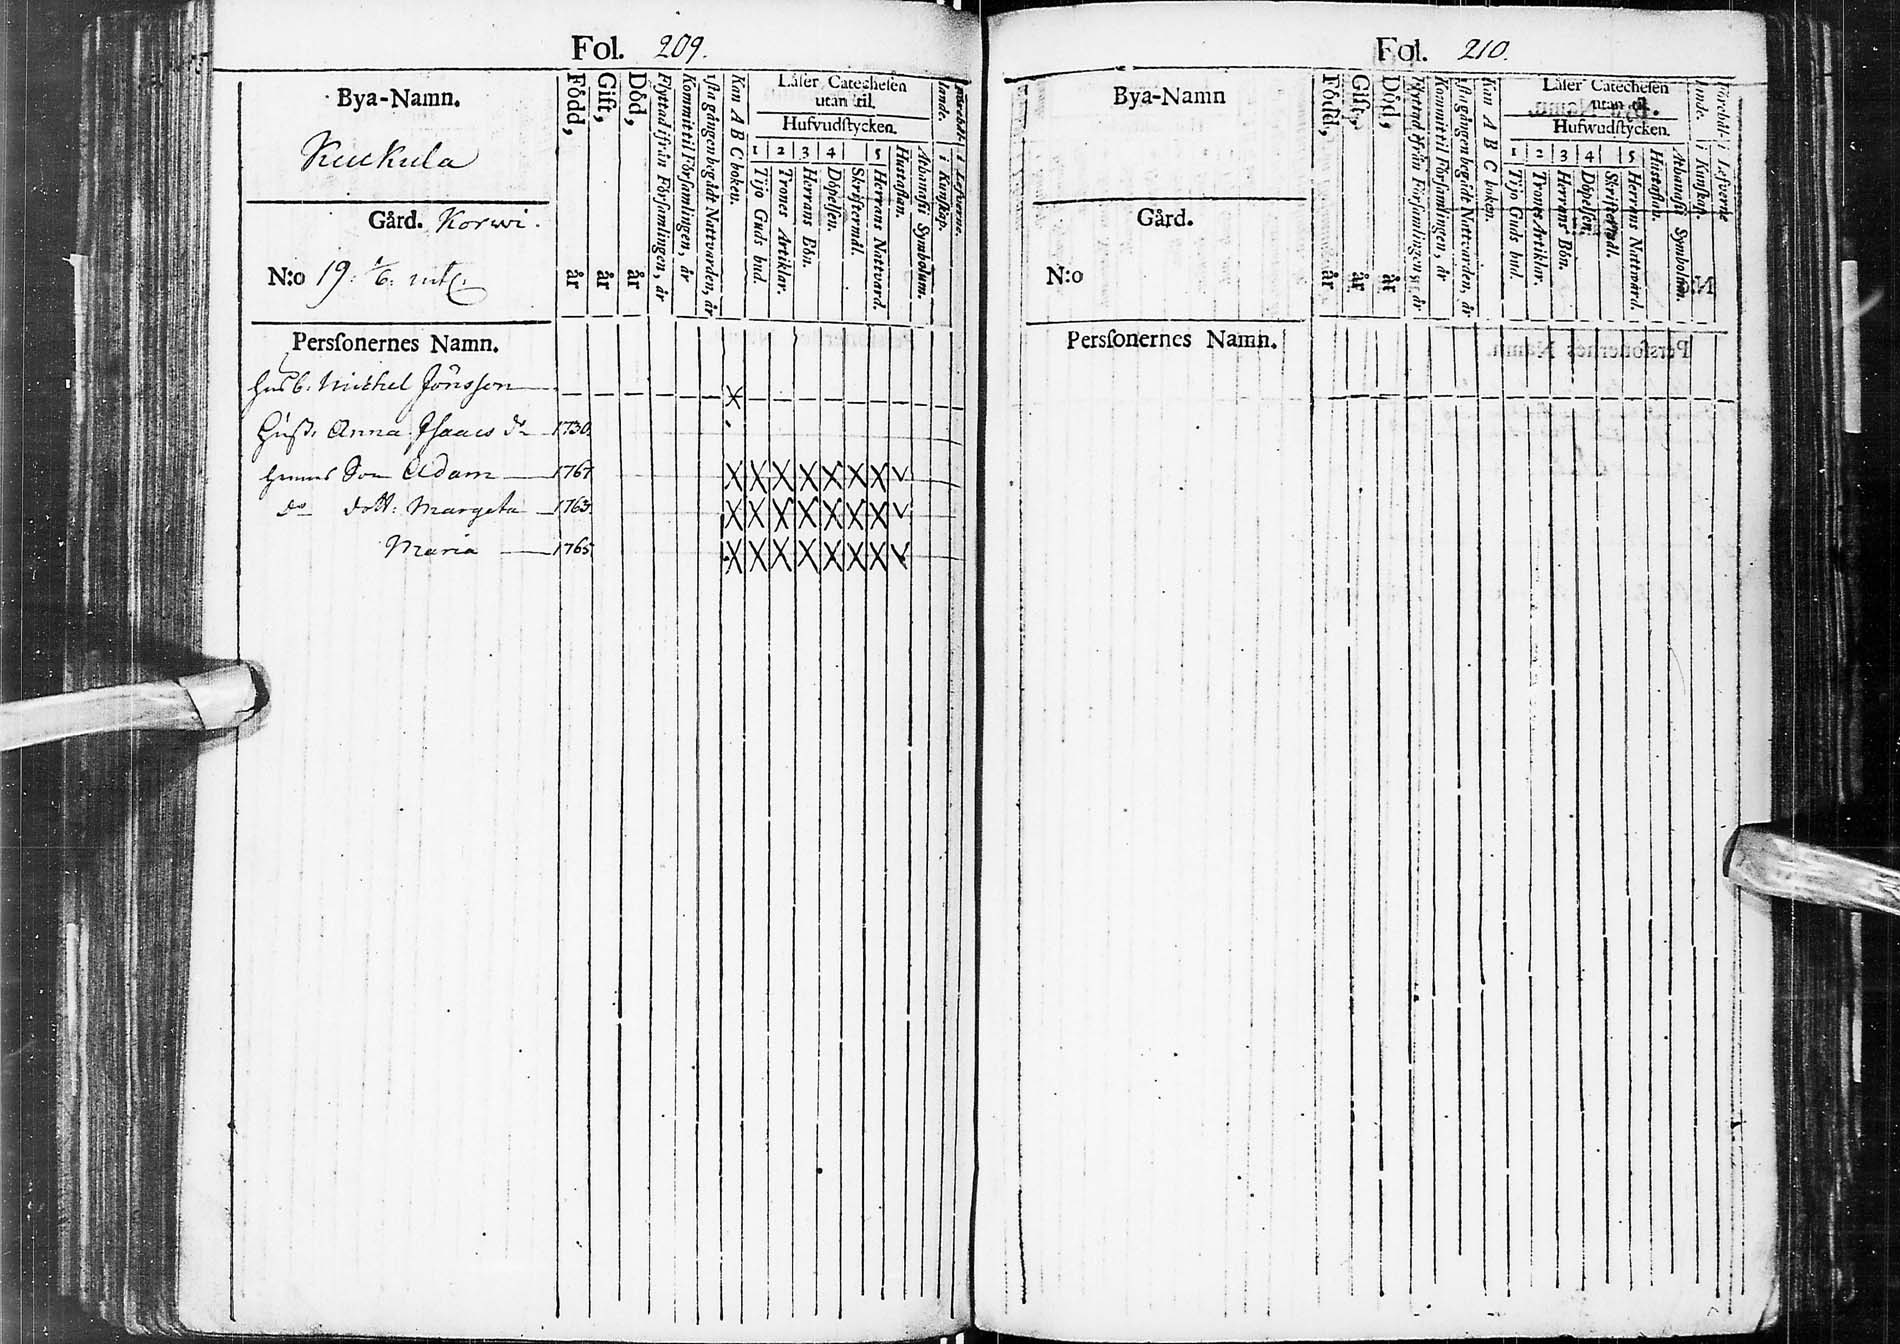 Fol. 209.
Bya-Namn.
Kuukula
Gård. Korwi.
N:o 19: 1/6: mtl.
Persſonernes Namn.
Född, år
Gift, år
Död, år
Flyttad ifrån Församlingen, år
Kommit til Församlingen, år
1sta gången begådt Nattvarden, år
Kan A B C boken.
Låſer Catecheſen
utan til.
Hufvudſtycken.
1 2 3 4 5
Tijo Guds bud.
Trones Artiklar.
Herrans Bön.
Döpelſen.
Skriftermål.
Herrans Nattvard.
Huſtaflan.
Athanaſii Symbolum.
i Kunſkap.
i Lefverne.
Husb: Michel Jönsson
Hust: Anna Isaacs dr 1730.
Hennes Son Adam 1767
do dott: Margeta 1763.
Maria 1765
Fol. 210.
Bya-Namn
Gård.
N:o
Persſonernes Namn.
Född, år
Gift, år
Död, år
Flyttad ifrån Församlingen, år
Kommit til Församlingen, år
1sta gången begådt Nattvarden, år
Kan A B C boken.
Låſer Catecheſen
utan til.
Hufwudſtycken.
1 2 3 4 5
Tijo Guds bud.
Trones Artiklar.
Herrans Bön.
Döpelſen.
Skriftermål.
Herrans Nattvard.
Huſtaflan.
Athanaſii Symbolum.
i Kunſkap.
i Lefverne